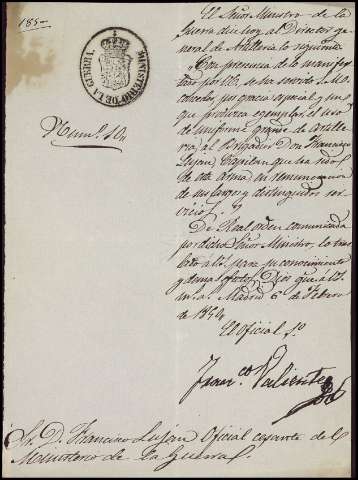 185-
MINISTERIO DE LA GUERRA.
Num. 104
El Señor Ministro de la
Guerra dice hoy al Director ge-
neral de Artilleria lo siguiente
"Con presencia de lo manifes-
tado por V.E. se ha servido S.M.
por gracia especial y sin
que produzca ejemplar, el uso
de uniforme grande de Artille-
ria, al Brigadier Don Francisco
Lujan, Capitan que ha sido
de esta arma, en remuneracion
de sus largos y distinguidos ser-
vicios."
De Real orden comunicada
por dicho Señor Ministro, lo tras-
lado á V.S. para su conocimiento
y demas efectos. Dios gue. á V.S.
m. a. Madrid 6 de Febrero
de 1854
El Oficial 1º
Franco. Valiente
Sr. D. Francisco Lujan Oficial cesante del
Ministerio de la Guerra.